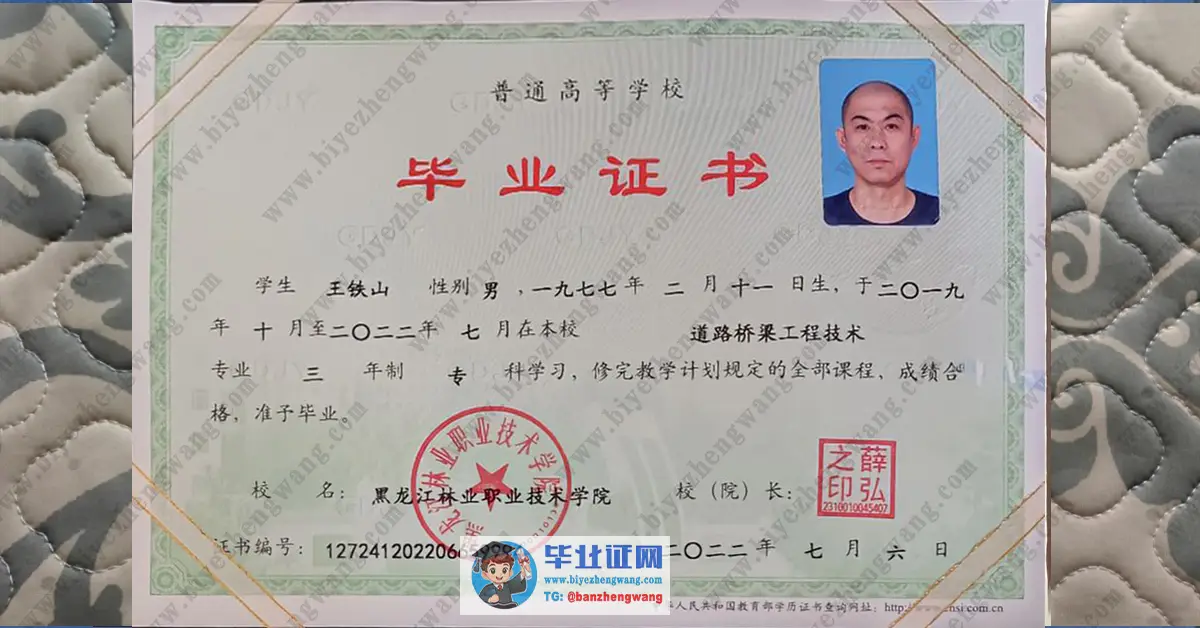 普通高等学校
毕业证书
学生 王铁山 性别 男 ,一九七七 年 二 月 十一 日生, 于 二〇一九
年 十 月至 二〇二二 年 七 月在本校 道路桥梁工程技术
专业 三 年制 专 科学习, 修完教学计划规定的全部课程、成绩合
格, 准予毕业。
黑龙江林业职业技术学院
校 名: 黑龙江林业职业技术学院 校 (院) 长:
薛弘之印
2310010045407
证书编号: 127241202206 二〇二二 年 七 月 六 日
毕业证网
www.biyezhengwang.com
TG: @banzhengwang
人民共和国教育部学历证书查询网址: http://www.chsi.com.cn
www.biyezhengwang.com